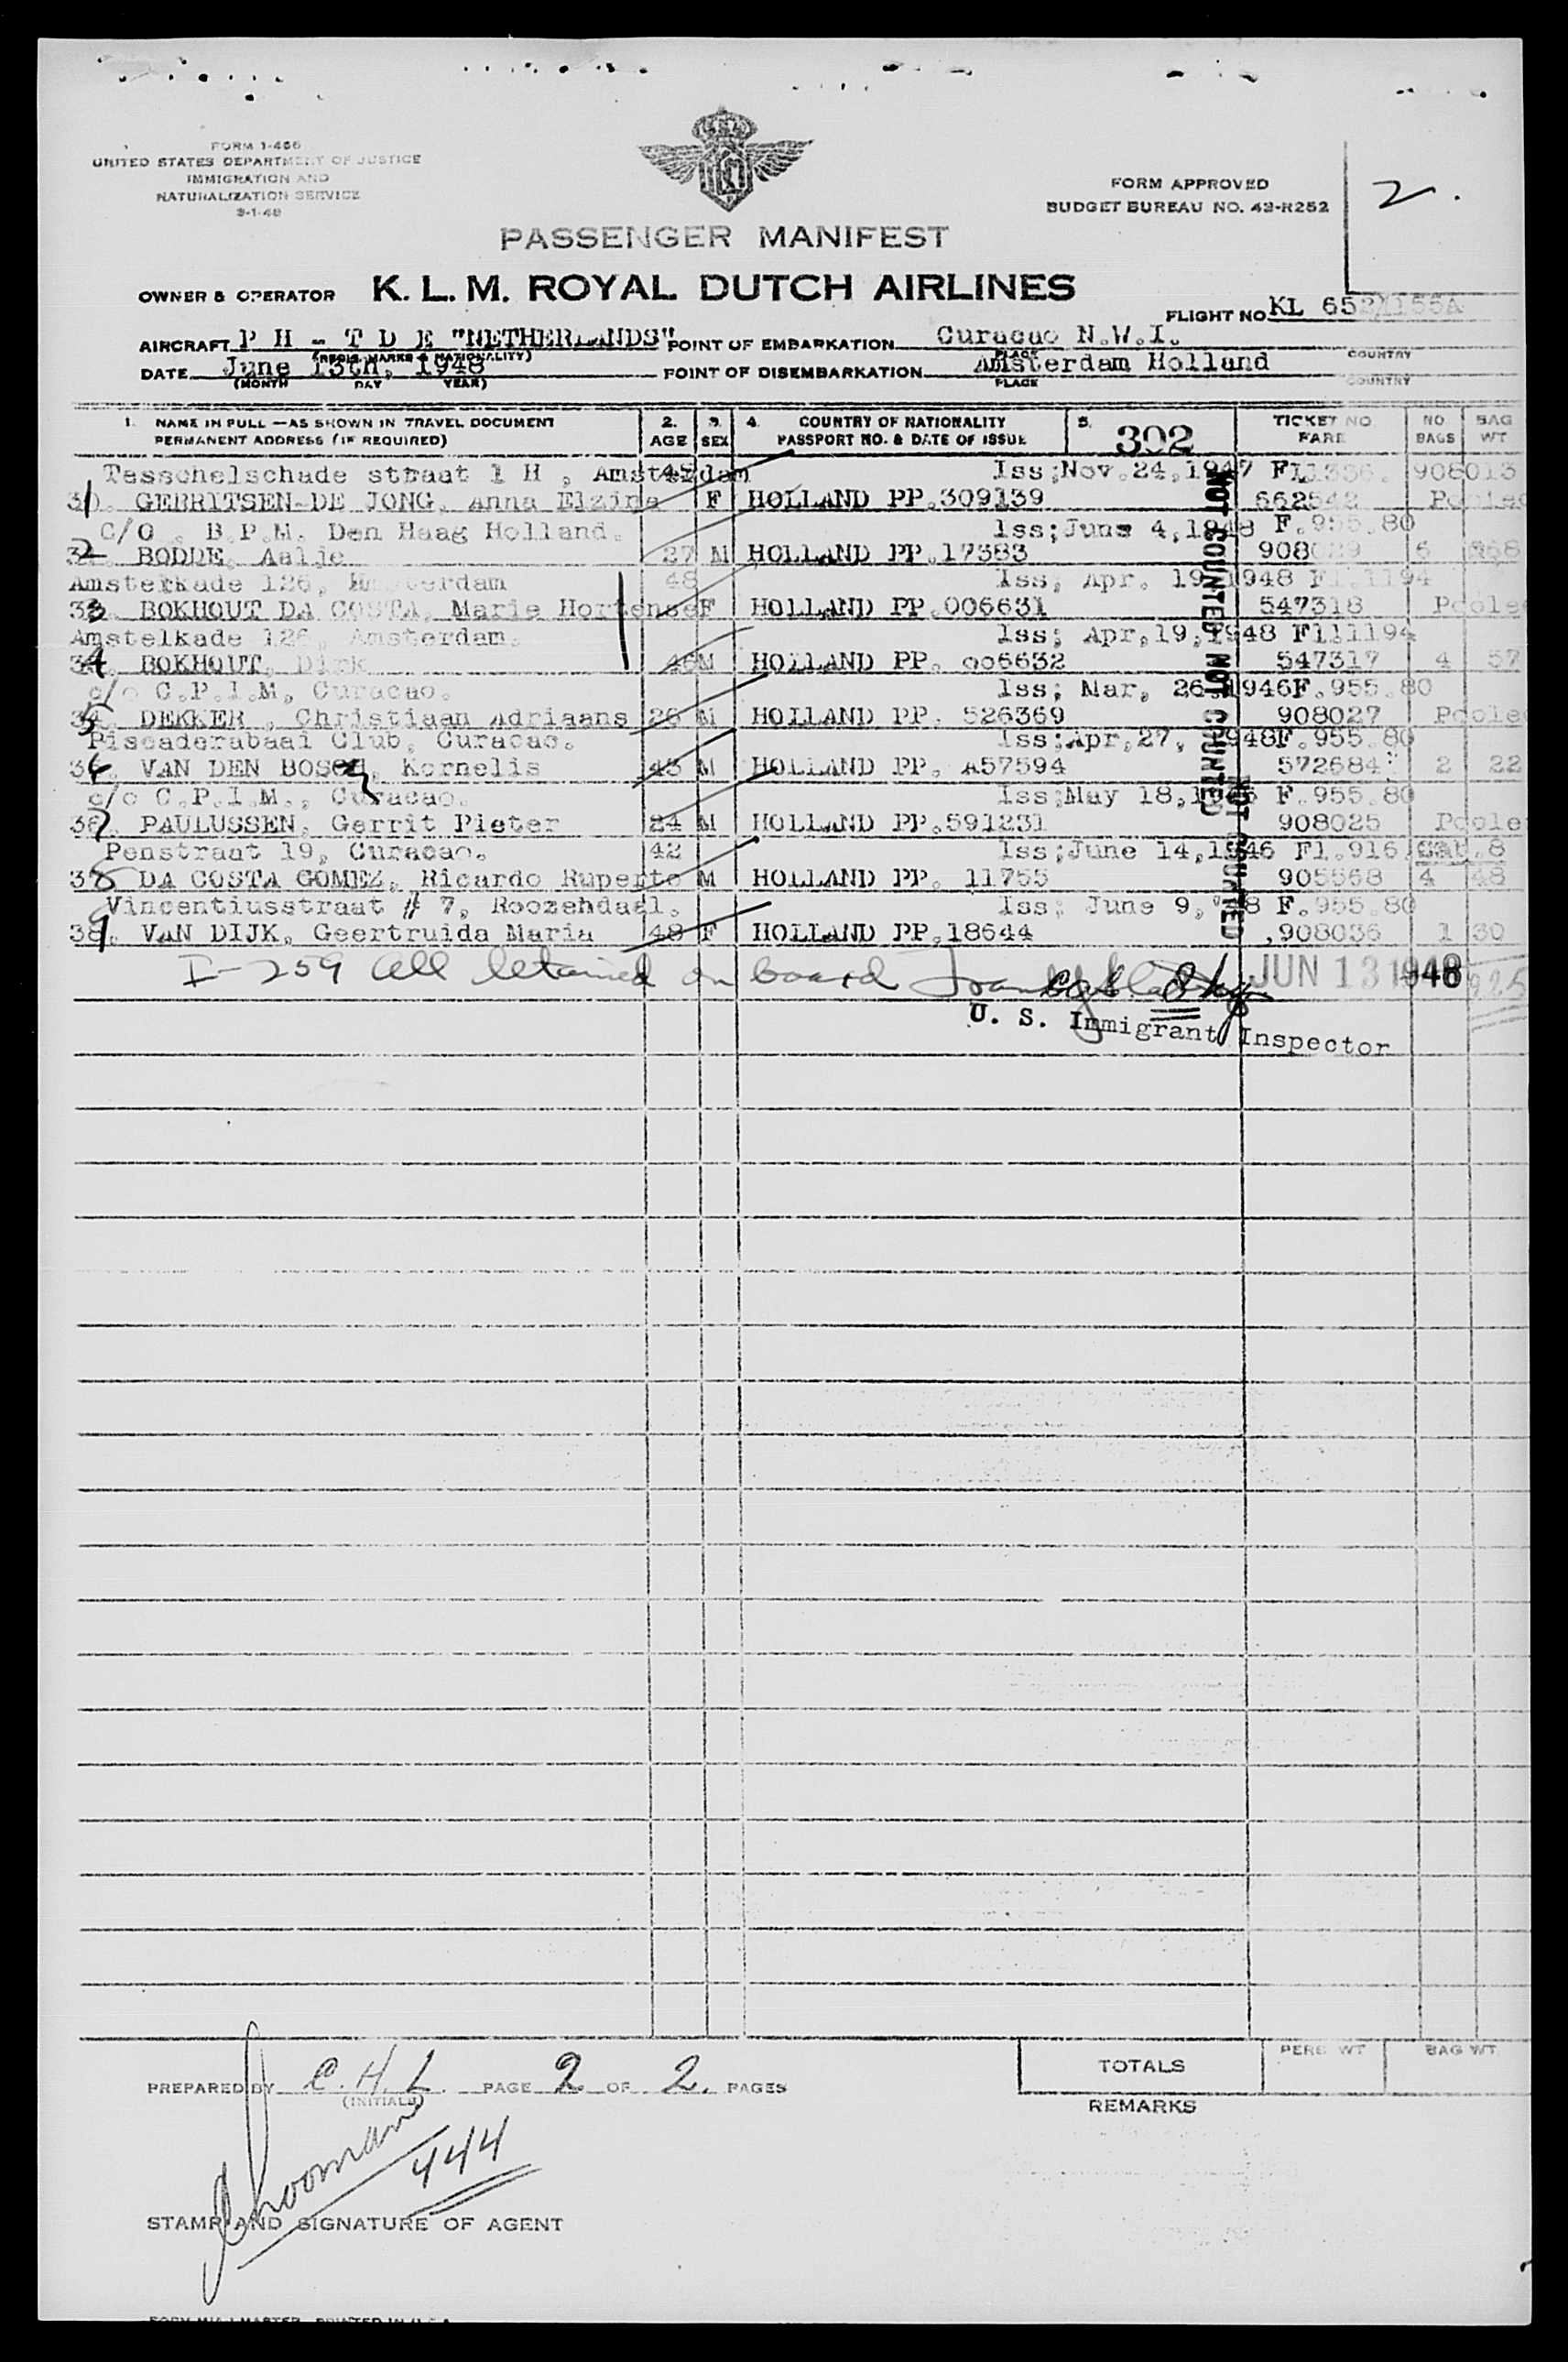 FORM 1-466
UNITED STATES DEPARTMENT OF JUSTICE
IMMIGRATION AND
NATURALIZATION SERVICE
FORM APPROVED
BUDGET BUREAU NO. 43-R252
2.
PASSENGER MANIFEST
OWNER & OPERATOR K. L. M. ROYAL DUTCH AIRLINES
FLIGHT NO KL 652
AIRCRAFT P H - T D E "NETHERLANDS" POINT OF EMBARKATION Curacao N.W.I.
(REGIS. MARKS & NATIONALITY) PLACE COUNTRY
DATE June 13th, 1948 POINT OF DISEMBARKATION Amsterdam Holland
(MONTH DAY YEAR) PLACE COUNTRY
1. NAME IN FULL—AS SHOWN IN TRAVEL DOCUMENT 2. 3. 4. COUNTRY OF NATIONALITY 5. 302 TICKET NO. NO. BAG
PERMANENT ADDRESS (IF REQUIRED) AGE SEX PASSPORT NO. & DATE OF ISSUE FARE BAGS WT
Tesschelschade straat 1 H , Amsterdam Iss;Nov.24,1947 908013
31. GERRITSEN-DE JONG, Anna Elzina F HOLLAND PP.309139 662542 Pooled
C/O . B.P.M. Den Haag Holland. Iss;June 4,1948 F.955.80
32 BODDE, Aalje 27 M HOLLAND PP.17383 6
126, 48 Iss; Apr. 19 1948
33. BOKHOUT DA COSTA, Marie Hortense F HOLLAND PP.006631 547318 Pooled
Amstelkade 126, Amsterdam. Iss; Apr,19,1948 F111194
34. BOKHOUT, Dirk 46 M HOLLAND PP. 006632 547317 4 57
c/o C.P.I.M, Curacao. Iss; Mar, 26 1946 F.955.80
35. DEKKER , Christiaan Adriaans 26 M HOLLAND PP. 526369 908027 Pooled
Piscaderabaai Club, Curacao. Iss;Apr,27, 1948 F.955.80
36. VAN DEN BOSCH, Kornelis 43 M HOLLAND PP. A57594 572684 2 22
c/o C.P.I.M., Curacao. Iss;May 18, F.955.80
37. PAULUSSEN, Gerrit Pieter 24 M HOLLAND PP.591231 908025 Poole
Penstraat 19, Curacao. 42 Iss;June 14,1946 Fl.916
38 DA COSTA GOMEZ, Ricardo Ruperto M HOLLAND PP. 11755 905568 4 48
Vincentiusstraat # 7, Roozehdaal. Iss; June 9, '48 F.955.80
39. VAN DIJK, Geertruida Maria 48 F HOLLAND PP.18644 908036 1 30
NOT COUNTED NOT COUNTED
NOT COUNTED
I-259 all detained on board JUN 13 1948
U. S. Immigrant Inspector
PREPARED BY C.H.L. PAGE 2 OF 2. PAGES
(INITIALS)
TOTALS PERS WT BAG WT.
REMARKS
444
STAMP AND SIGNATURE OF AGENT